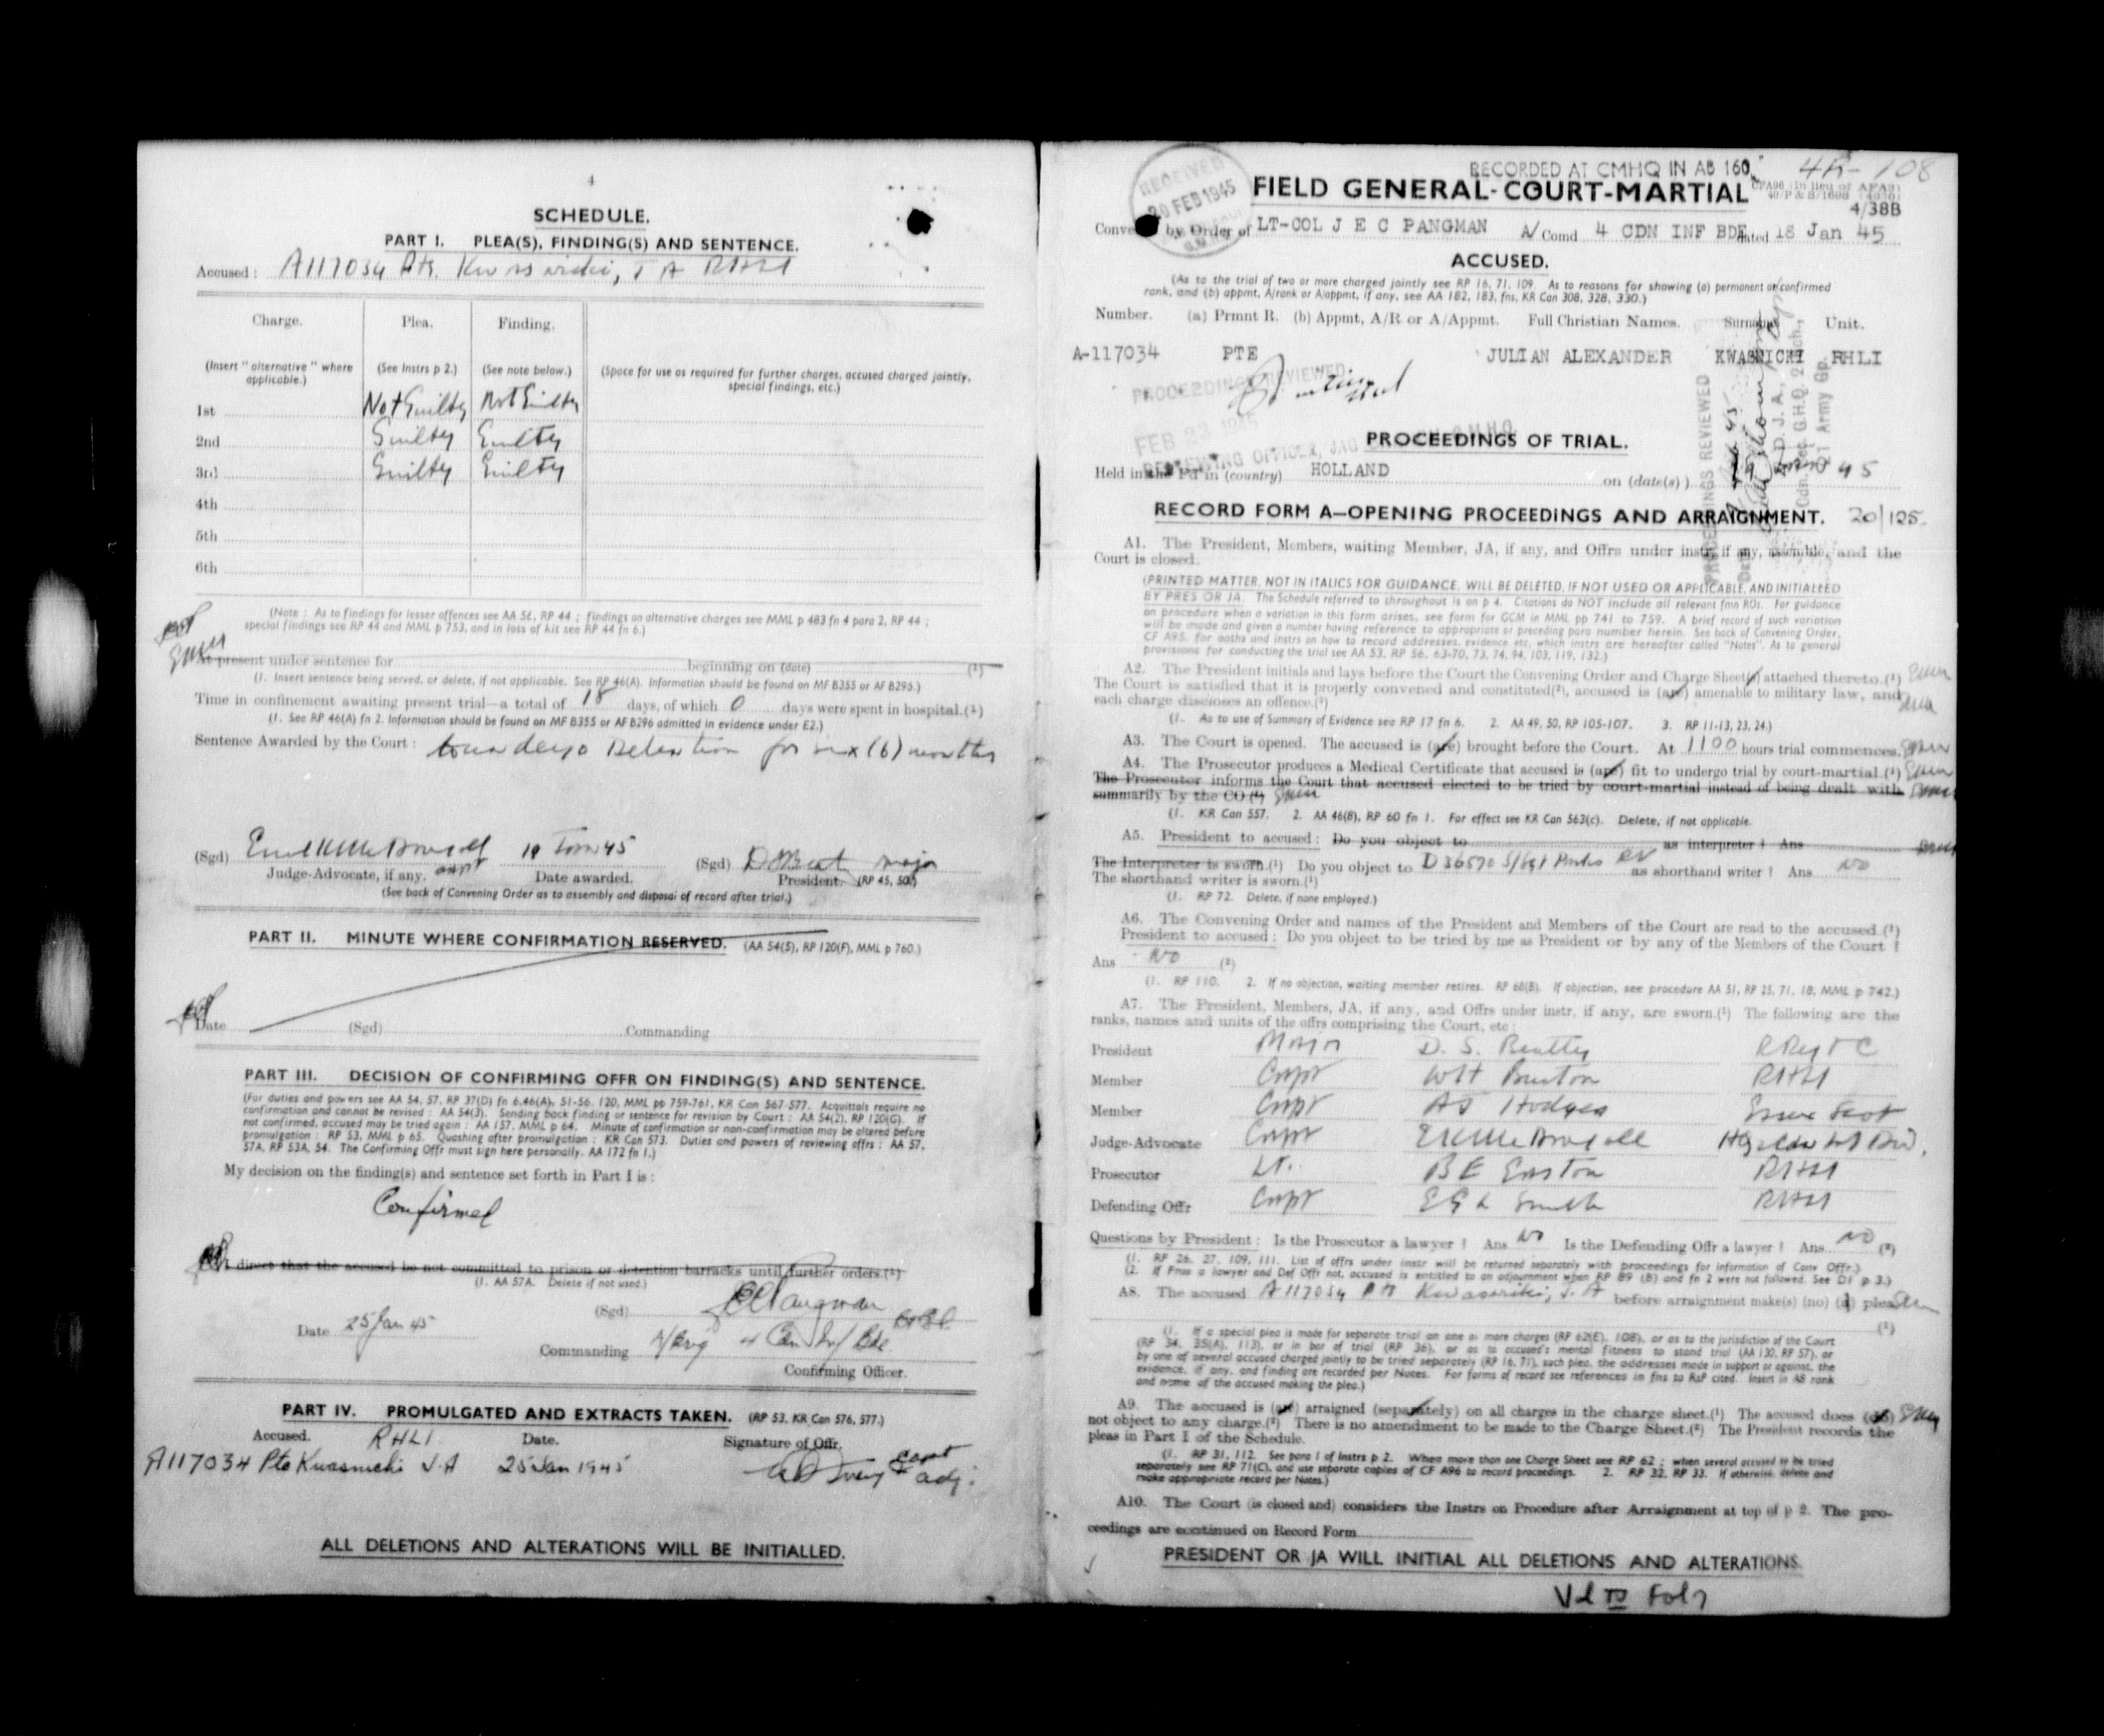 4
SCHEDULE.
PART I. PLEA(S), FINDING(S) AND SENTENCE.
Accused: A117034 Pte. J A RHLI
Charge. Plea. Finding.
(Insert "alternative" where applicable.) (See Instrs p 2.) (See note below.) (Space for use as required for further charges, accused charged jointly, special findings, etc.)
1st Not Guilty Not Guilty
2nd Guilty Guilty
3rd Guilty Guilty
4th
5th
6th
(Note: As to findings for lesser offences see AA 56, RP 44; findings on alternative charges see MML p 483 fn 4 para 2, RP 44;
special findings see RP 44 and MML p 753, and in loss of kit see RP 44 fn 6.)
At present under sentence for beginning on (date) (1)
(1. Insert sentence being served, or delete, if not applicable. See RP 46(A). Information should be found on MF B355 or AF B296.)
Time in confinement awaiting present trial—a total of 18 days, of which 0 days were spent in hospital.(1)
(1. See RP 46(A) fn 2. Information should be found on MF B355 or AF B296 admitted in evidence under E2.)
Sentence Awarded by the Court: to undergo Detention for six (6) months
(Sgd) Capt 19 Jan 45 (Sgd) Major
Judge-Advocate, if any. Date awarded. President. (RP 45, 50.)
(See back of Convening Order as to assembly and disposal of record after trial.)
PART II. MINUTE WHERE CONFIRMATION RESERVED. (AA 54(5), RP 120(F), MML p 760.)
Date (Sgd) Commanding
PART III. DECISION OF CONFIRMING OFFR ON FINDING(S) AND SENTENCE.
(For duties and powers see AA 54, 57, RP 37(D) fn 6,46(A), 51-56, 120, MML pp 759-761, KR Can 567-577. Acquittals require no
confirmation and cannot be revised: AA 54(3). Sending back finding or sentence for revision by Court: AA 54(2), RP 120(G). If
not confirmed, accused may be tried again: AA 157, MML p 64. Minute of confirmation or non-confirmation may be altered before
promulgation: RP 53, MML p 65. Quashing after promulgation: KR Can 573. Duties and powers of reviewing offrs: AA 57,
57A, RP 53A, 54. The Confirming Offr must sign here personally. AA 172 fn 1.)
My decision on the finding(s) and sentence set forth in Part I is:
Confirmed
I direct that the accused be not committed to prison or detention barracks until further orders.(1)
(1. AA 57A. Delete if not used.)
(Sgd) JEC Pangman Lt-Col
Date 25 Jan 45
Commanding A/Brig 4 Cdn Inf Bde
Confirming Officer.
PART IV. PROMULGATED AND EXTRACTS TAKEN. (RP 53, KR Can 576, 577.)
Accused. RHLI Date. Signature of Offr.
A117034 Pte Kwasnicki J.A 25 Jan 1945 Capt adj.
ALL DELETIONS AND ALTERATIONS WILL BE INITIALLED.
RECORDED AT CMHQ IN AB 160 108
RECEIVED 20 FEB 1945
FIELD GENERAL-COURT-MARTIAL
CFA96 (In lieu of AFA9)
4/38B
Convened by Order of LT-COL J E C PANGMAN A/ Comd 4 CDN INF BDE dated 18 Jan 45
ACCUSED.
(As to the trial of two or more charged jointly see RP 16, 71, 109. As to reasons for showing (a) permanent or confirmed
rank, and (b) appmt, A/rank or A/appmt, if any, see AA 182, 183, fns, KR Can 308, 328, 330.)
Number. (a) Prmnt R. (b) Appmt, A/R or A/Appmt. Full Christian Names. Surname Unit.
A-117034 PTE JULIAN ALEXANDER KWASNICKI RHLI
PROCEEDINGS REVIEWED
FEB 23 1945
REVIEWING OFFICER, JAG C.M.H.Q.
PROCEEDINGS REVIEWED
D. J. A.,
Cdn. Sec. G.H.Q. 2 Ech.,
21 Army Gp.
PROCEEDINGS OF TRIAL.
Held in the Fd in (country) HOLLAND on (date(s)) 19 Jan 45
RECORD FORM A—OPENING PROCEEDINGS AND ARRAIGNMENT. 20/125.
A1. The President, Members, waiting Member, JA, if any, and Offrs under instr, if any, assemble, and the
Court is closed.
(PRINTED MATTER, NOT IN ITALICS FOR GUIDANCE, WILL BE DELETED, IF NOT USED OR APPLICABLE, AND INITIALLED
BY PRES OR JA. The Schedule referred to throughout is on p 4. Citations do NOT include all relevant fmn ROs. For guidance
on procedure when a variation in this form arises, see form for GCM in MML pp 741 to 759. A brief record of such variation
will be made and given a number having reference to appropriate or preceding para number herein. See back of Convening Order,
CF A95, for oaths and instrs on how to record addresses, evidence etc, which instrs are hereafter called "Notes". As to general
provisions for conducting the trial see AA 53, RP 56, 63-70, 73, 74, 94, 103, 119, 132.)
A2. The President initials and lays before the Court the Convening Order and Charge Sheet(s) attached thereto.(1)
The Court is satisfied that it is properly convened and constituted(2), accused is (are) amenable to military law, and
each charge discloses an offence.(3)
(1. As to use of Summary of Evidence see RP 17 fn 6. 2. AA 49, 50, RP 105-107. 3. RP 11-13, 23, 24.)
A3. The Court is opened. The accused is (are) brought before the Court. At 1100 hours trial commences.
A4. The Prosecutor produces a Medical Certificate that accused is (are) fit to undergo trial by court-martial.(1)
The Prosecutor informs the Court that accused elected to be tried by court-martial instead of being dealt with
summarily by the CO.(2)
(1. KR Can 557. 2. AA 46(8), RP 60 fn 1. For effect see KR Can 563(c). Delete, if not applicable.
A5. President to accused: Do you object to as interpreter? Ans
The Interpreter is sworn.(1) Do you object to D 36570 S/Sgt as shorthand writer? Ans NO
The shorthand writer is sworn.(1)
(1. RP 72. Delete, if none employed.)
A6. The Convening Order and names of the President and Members of the Court are read to the accused.(1)
President to accused: Do you object to be tried by me as President or by any of the Members of the Court?
Ans NO (2)
(1. RP 110. 2. If no objection, waiting member retires. RP 68(B). If objection, see procedure AA 51, RP 25, 71, 18, MML p 742.)
A7. The President, Members, JA, if any, and Offrs under instr, if any, are sworn.(1) The following are the
ranks, names and units of the offrs comprising the Court, etc:
President Major D. S. Beatty R Regt C
Member Capt WH RHLI
Member Capt AJ Hodges Essex Scot
Judge-Advocate Capt
Prosecutor Lt. B E Easton RHLI
Defending Offr Capt E G L Smith RHLI
Questions by President: Is the Prosecutor a lawyer? Ans NO Is the Defending Offr a lawyer? Ans NO (2)
(1. RP 26, 27, 109, 111. List of offrs under instr will be returned separately with proceedings for information of Conv Offr.)
(2. If Pros a lawyer and Def Offr not, accused is entitled to an adjournment when RP 89 (B) and fn 2 were not followed. See D1 p 3.)
A8. The accused A117034 Pte Kwasnicki, J. A before arraignment make(s) (no) (a) plea
(1)
(1. If a special plea is made for separate trial on one or more charges (RP 62(E), 108), or as to the jurisdiction of the Court
(RP 34, 35(A), 113), or in bar of trial (RP 36), or as to accused's mental fitness to stand trial (AA 130, RP 57), or
by one of several accused charged jointly to be tried separately (RP 16, 71), such plea, the addresses made in support or against, the
evidence, if any, and finding are recorded per Notes. For forms of record see references in fns to RsP cited. Insert in A8 rank
and name of the accused making the plea.)
A9. The accused is (are) arraigned (separately) on all charges in the charge sheet.(1) The accused does (do)
not object to any charge.(2) There is no amendment to be made to the Charge Sheet.(2) The President records the
pleas in Part I of the Schedule.
(1. RP 31, 112. See para 1 of Instrs p 2. When more than one Charge Sheet see RP 62; when several accused to be tried
separately see RP 71(C), and use separate copies of CF A96 to record proceedings. 2. RP 32, RP 33. If otherwise, delete and
make appropriate record per Notes.)
A10. The Court (is closed and) considers the Instrs on Procedure after Arraignment at top of p 2. The pro-
ceedings are continued on Record Form
PRESIDENT OR JA WILL INITIAL ALL DELETIONS AND ALTERATIONS.